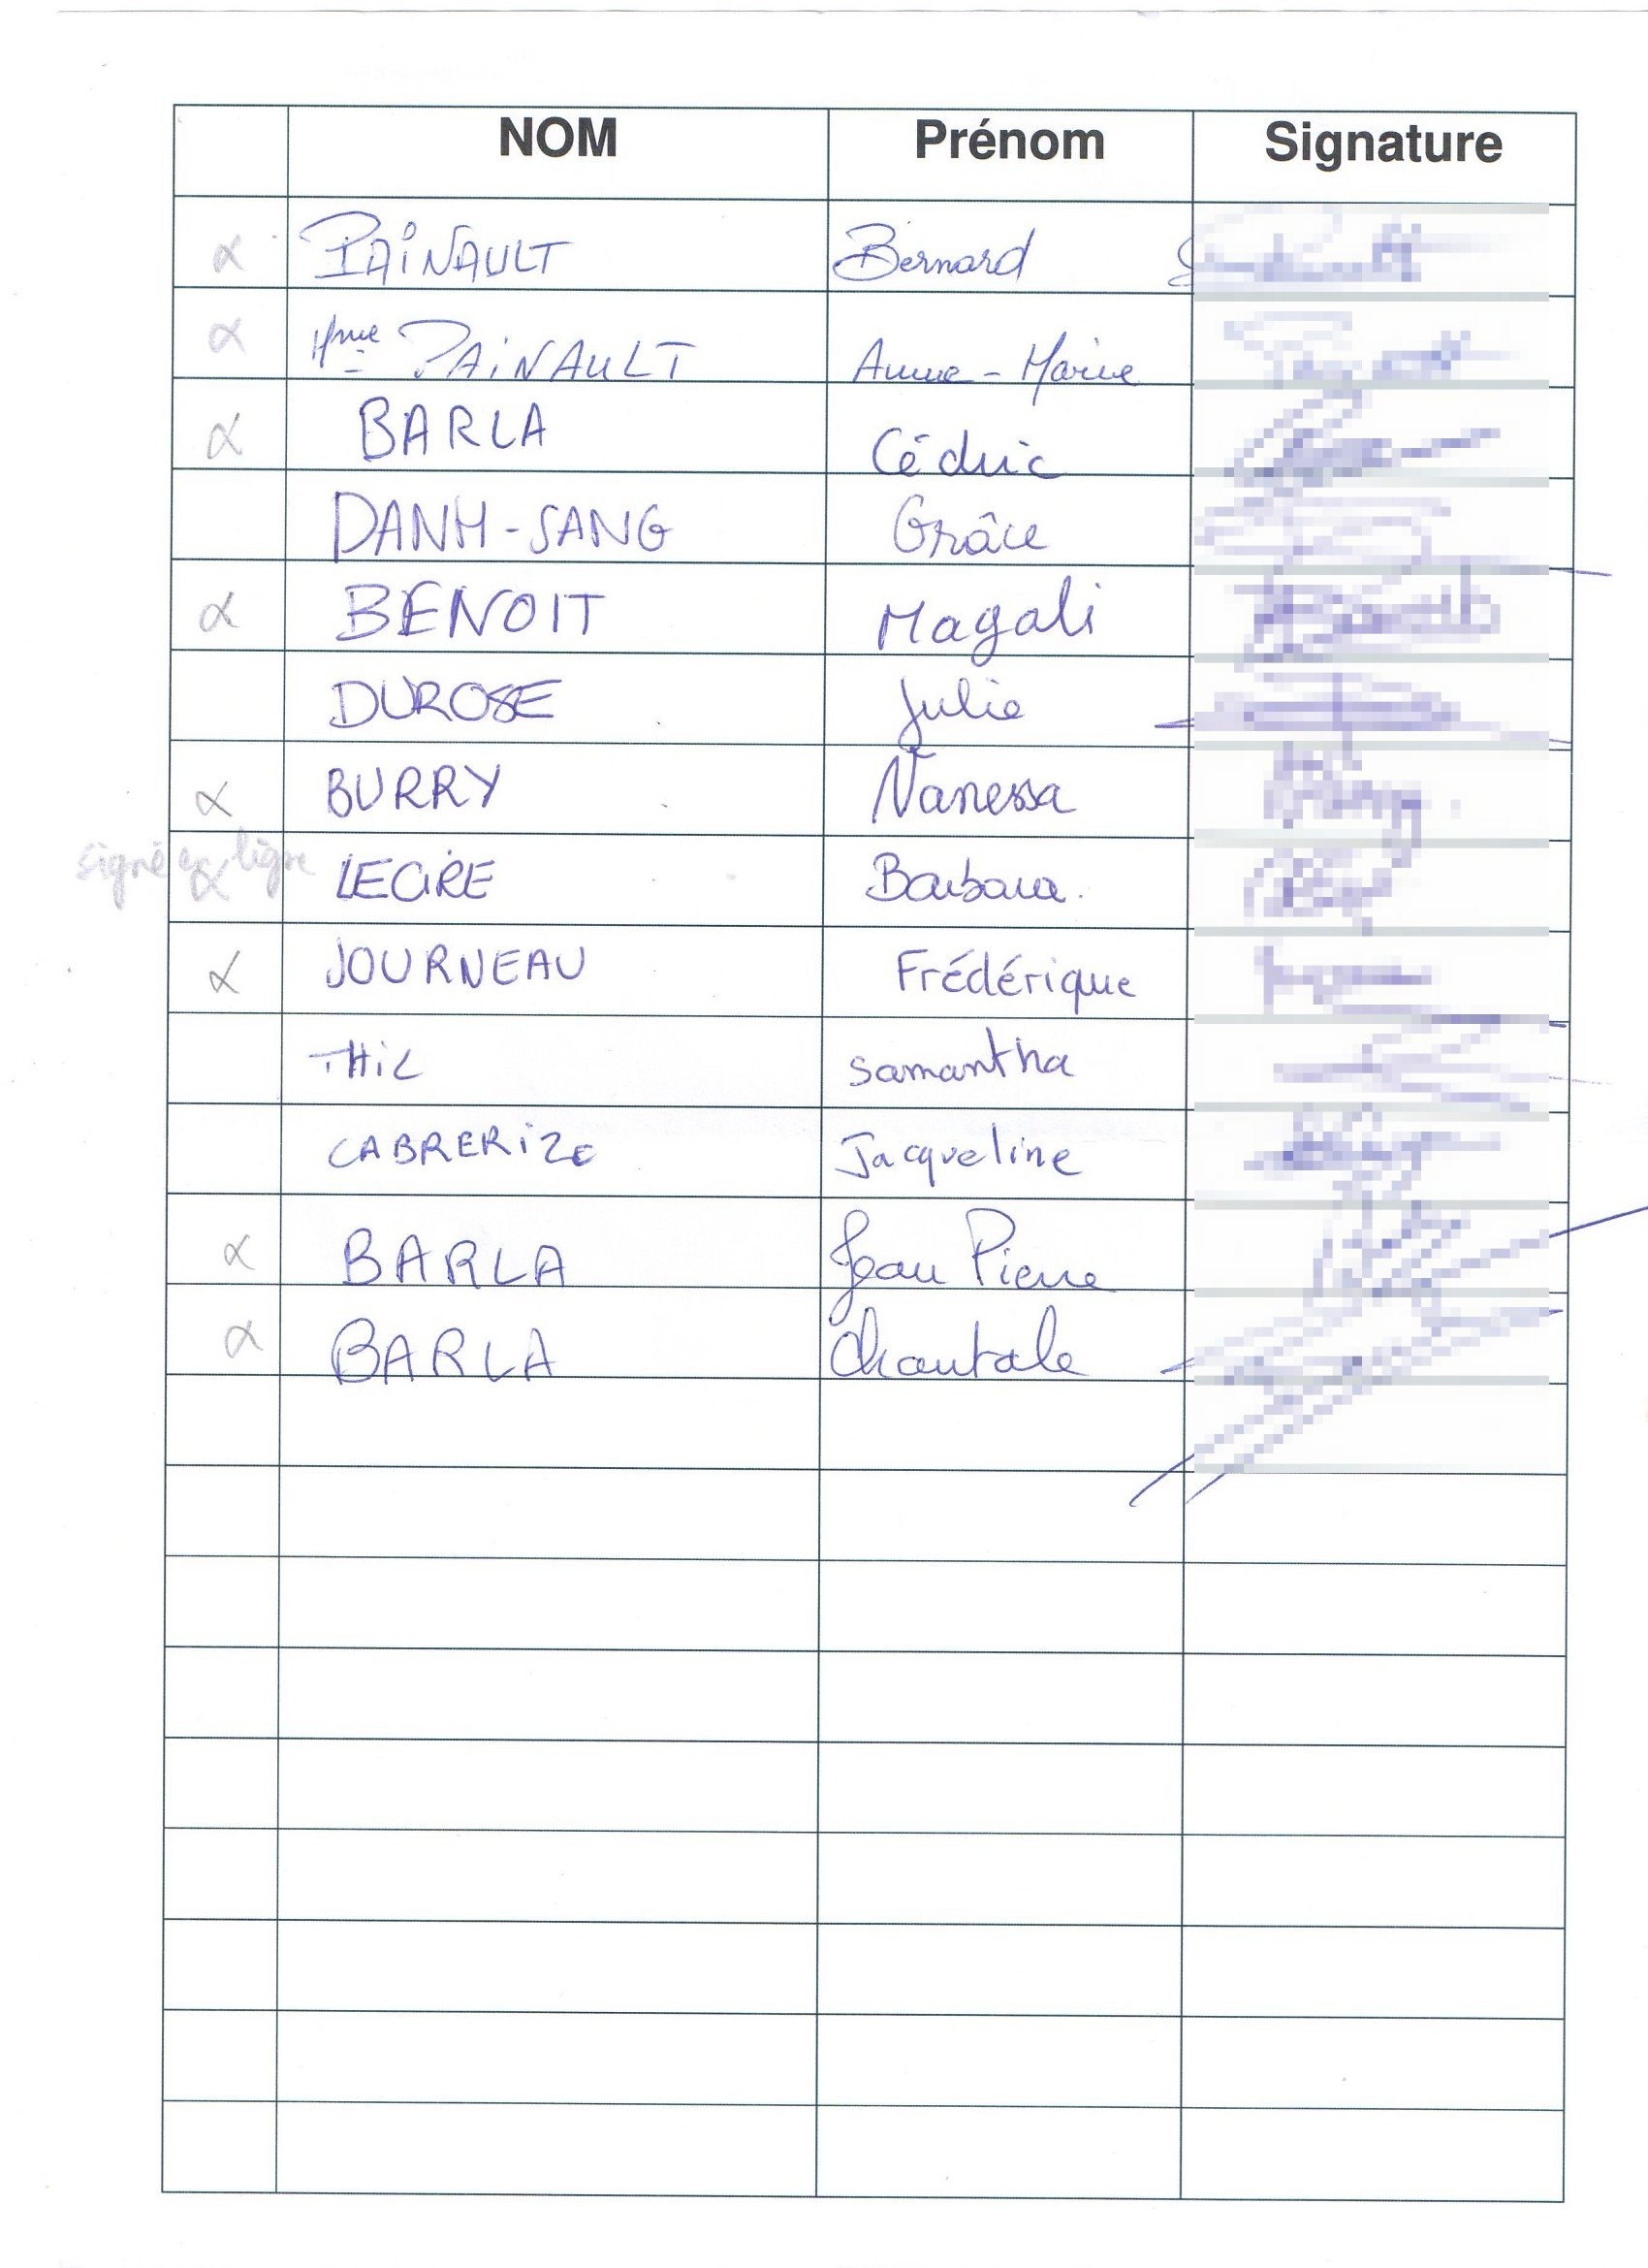 NOM Prénom Signature
α PAINAULT Bernard
α Mme PAINAULT Anne-Marie
α BARLA Cédric
DANH-SANG Grâce
α BENOIT Magali
DUROSE Julie
α BURRY Vanessa
signé en ligne
α Barbara.
α JOURNEAU Frédérique
THiL samantha
Jacqueline
α BARLA Jean Pierre
α BARLA Chantale